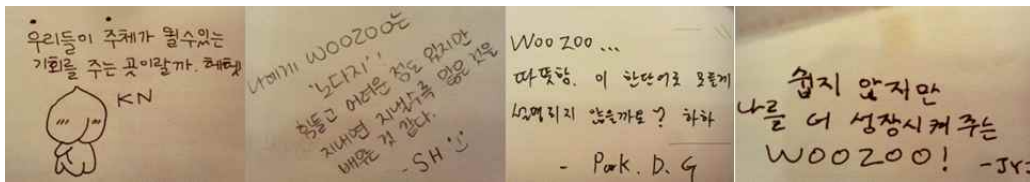 우리들이 주체가 될수있는
기회를 주는 곳이랄까. 헤헷
KN
나에게 WOOZOO는
'노다지'!
힘들고 어려운 점도 있지만
지내면 지낼수록 많은 것을
배우는 것 같다.
- SH
WooZoo...
따뜻함. 이 한단어로 모든게
설명되지 않을까요? 하하
- Park. D. G
쉽지 않지만
나를 더 성장시켜 주는
WOOZOO!